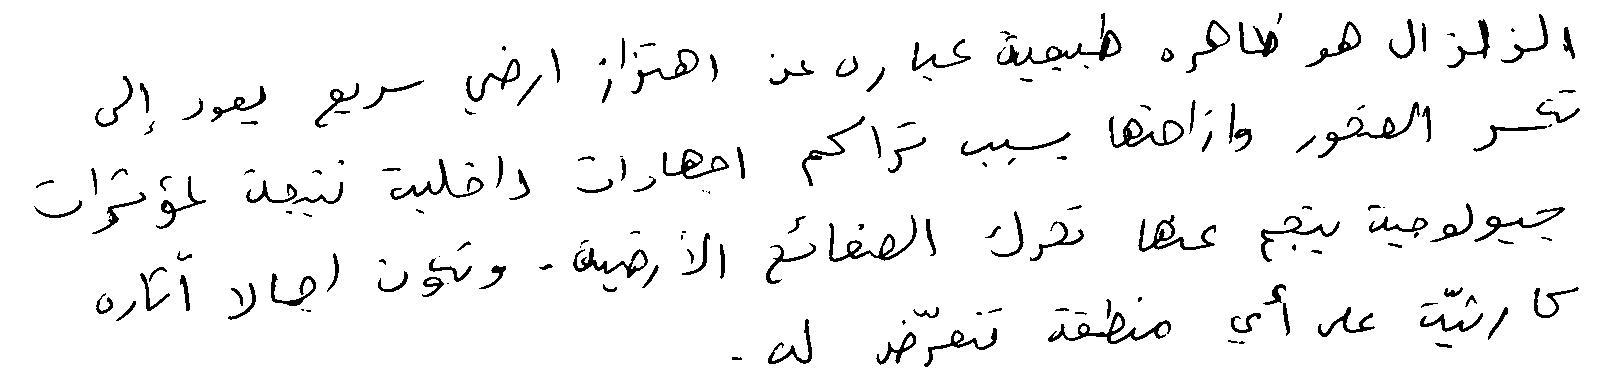 الزلزال هو ظاهره طبيعية عباره عن اهتزاز ارضي سريع يعود إلى
تكسر الصخور وازاحتها بسبب تراكم اجهادات داخلية نتيجة لمؤثرات
جيولوجية ينجم عنها تحرك الصفائح الأرضية. وتكون اجمالا آثاره
كارثيّة على أي منطقة تتعرّض له.